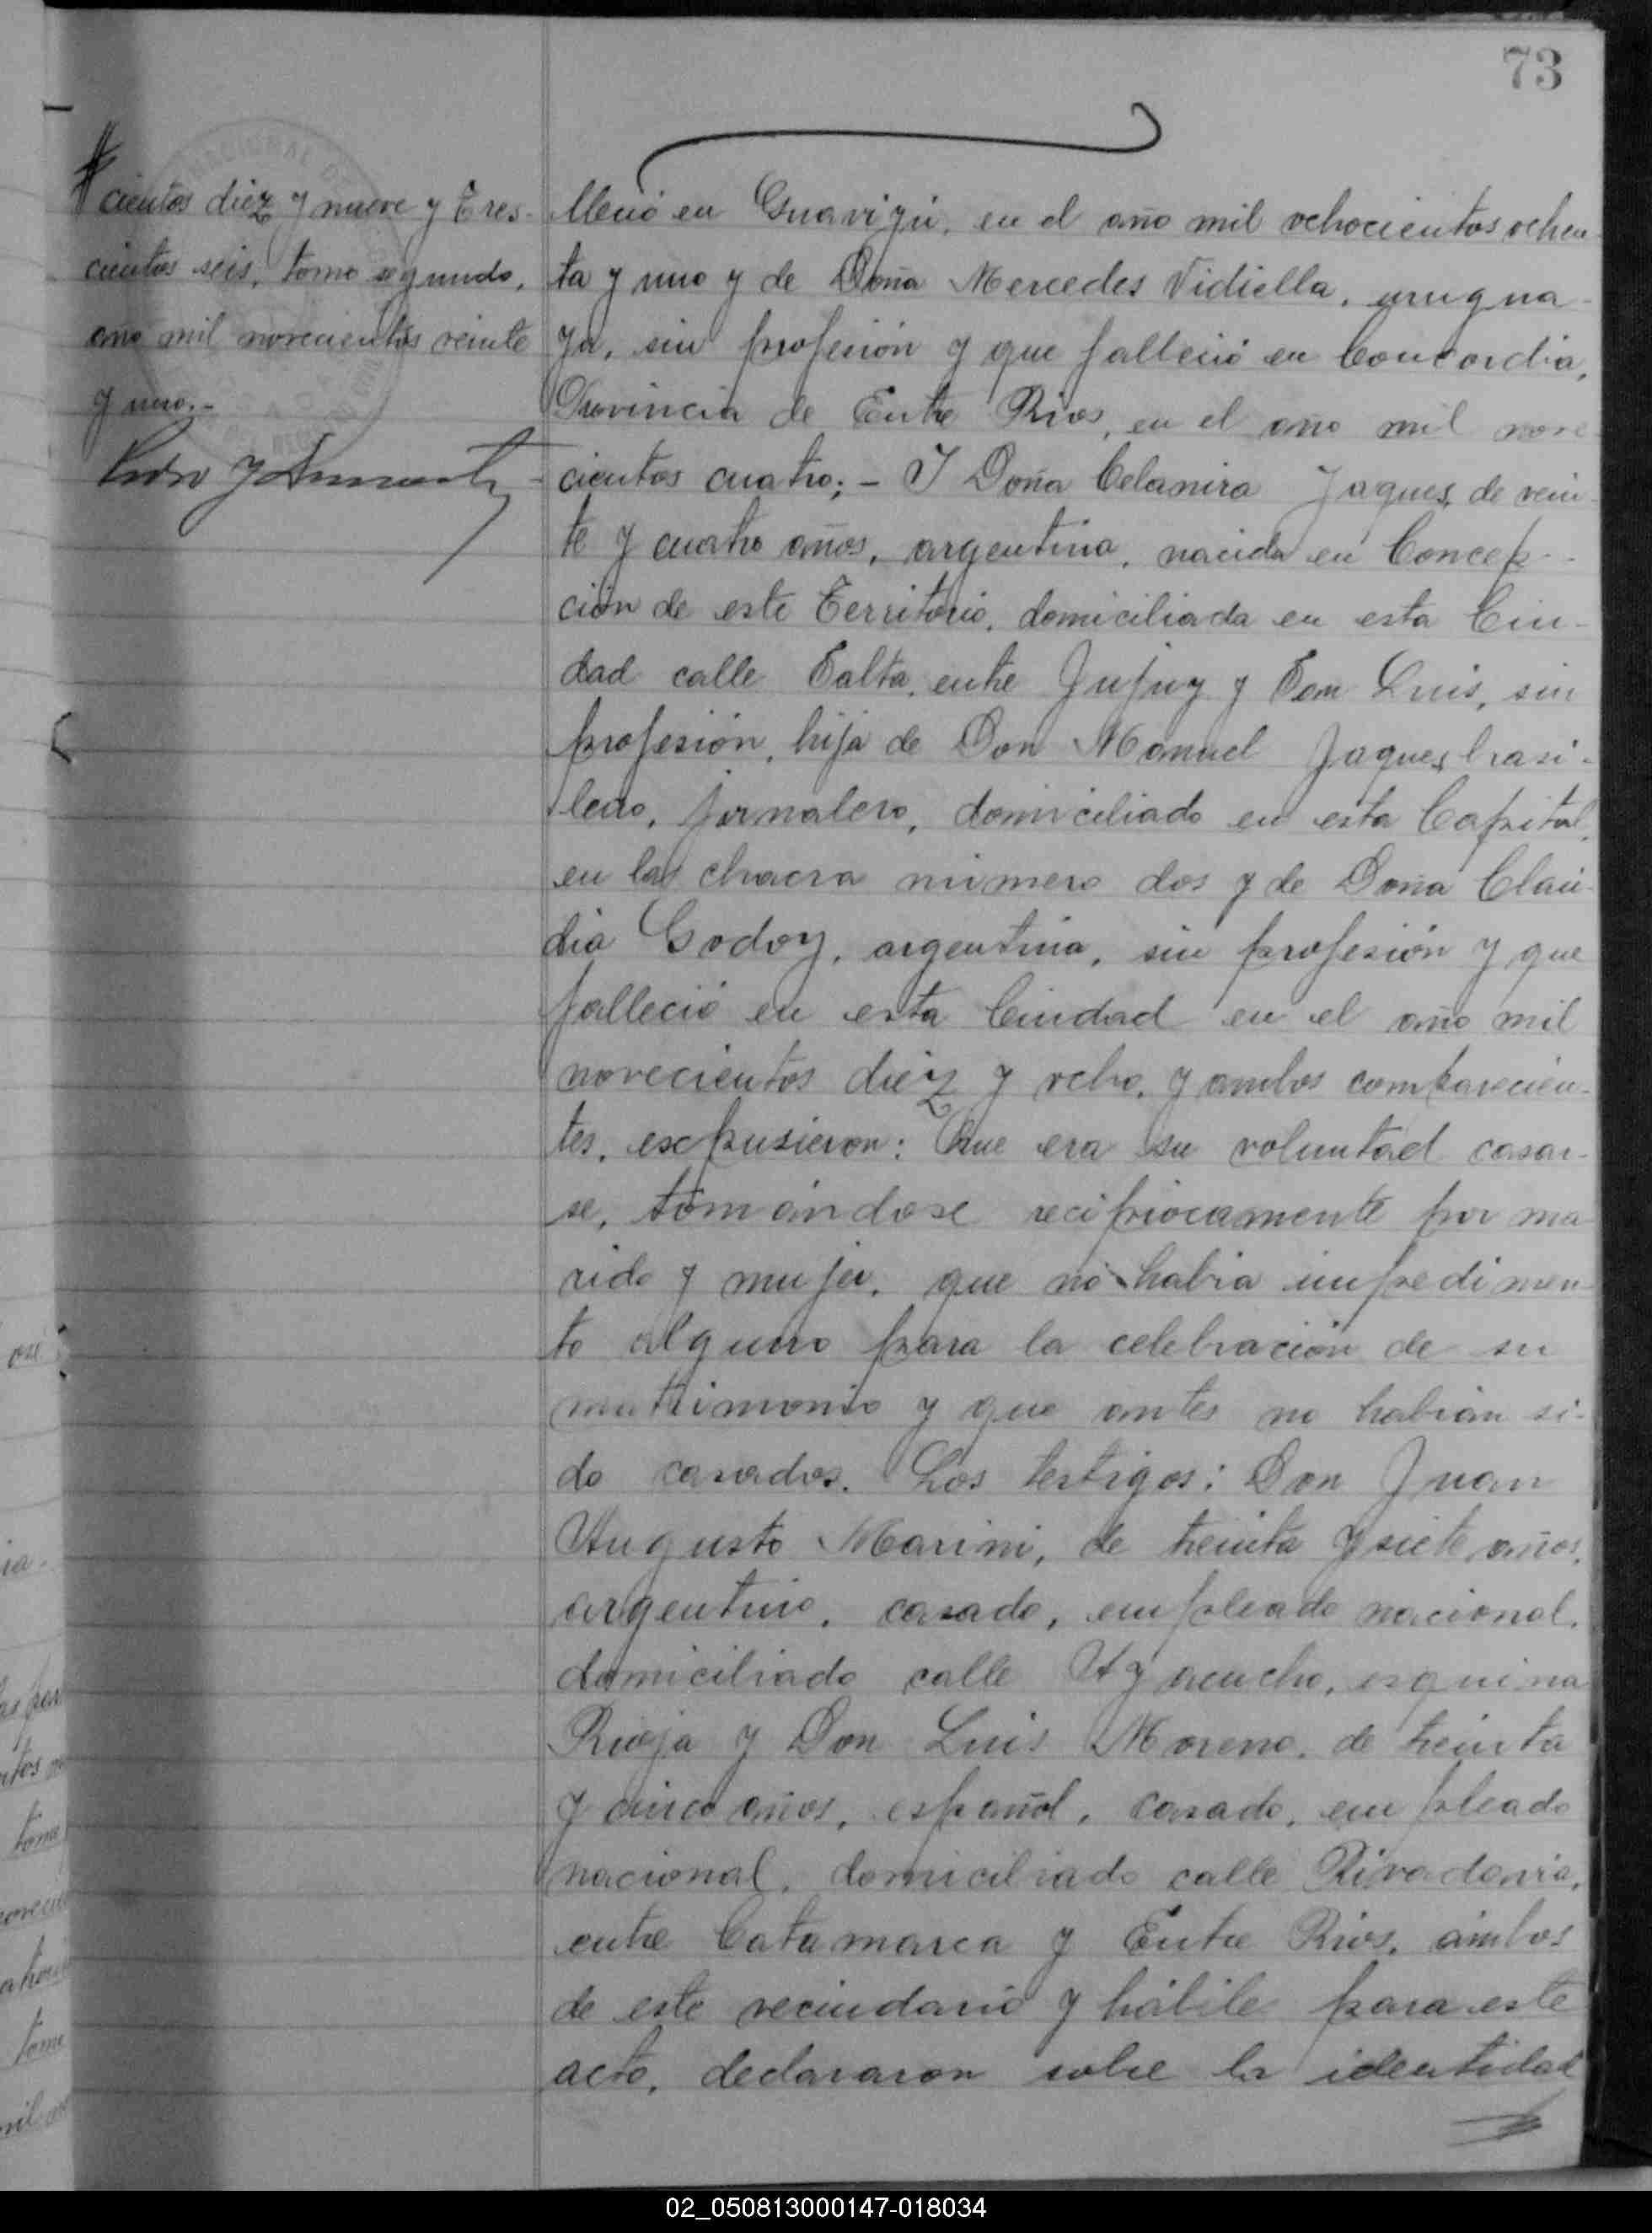 73
cientos diez y nueve y Tres-
cientos seis, tomo segundo,
año mil novecientos veinte
y uno.-
lleció en Guaviyú, en el año mil ochocientos ochen
ta y uno y de Doña Mercedes Vidiella, urugua-
ya, sin profesión y que falleció en Concordia,
Provincia de Entre Rios, en el año mil nove
cientos cuatro; - Y Doña Celanira Jaques, de vein-
te y cuatro años, argentina, nacida en Concep-
ción de este Territorio, domiciliada en esta Ciu-
dad calle Salta, entre Jujuy y San Luis, sin
profesión, hija de Don Manuel Jaques, brasi-
lero, jornalero, domiciliado en esta Capital,
en la chacra número dos y de Doña Clau-
dia Godoy, argentina, sin profesión y que
falleció en esta Ciudad en el año mil
novecientos diez y ocho, y ambos comparecien-
tes, expusieron: Que era su voluntad casar-
se, tomándose reciprocamente por ma
rido y mujer, que no habia impedimen
to alguno para la celebración de su
matrimonio y que antes no habian si-
do casados. Los testigos: Don Juan
Augusto Marini, de treinta y siete años,
argentino, casado, empleado nacional,
domiciliado calle Ayacucho, esquina
Rioja y Don Luis Moreno, de treinta
y cinco años, español, casado, empleado
nacional, domiciliado calle Rivadavia,
entre Catamarca y Entre Rios, ámbos
de este vecindario y hábiles para este
acto, declararon sobre la identidad
02_050813000147-018034